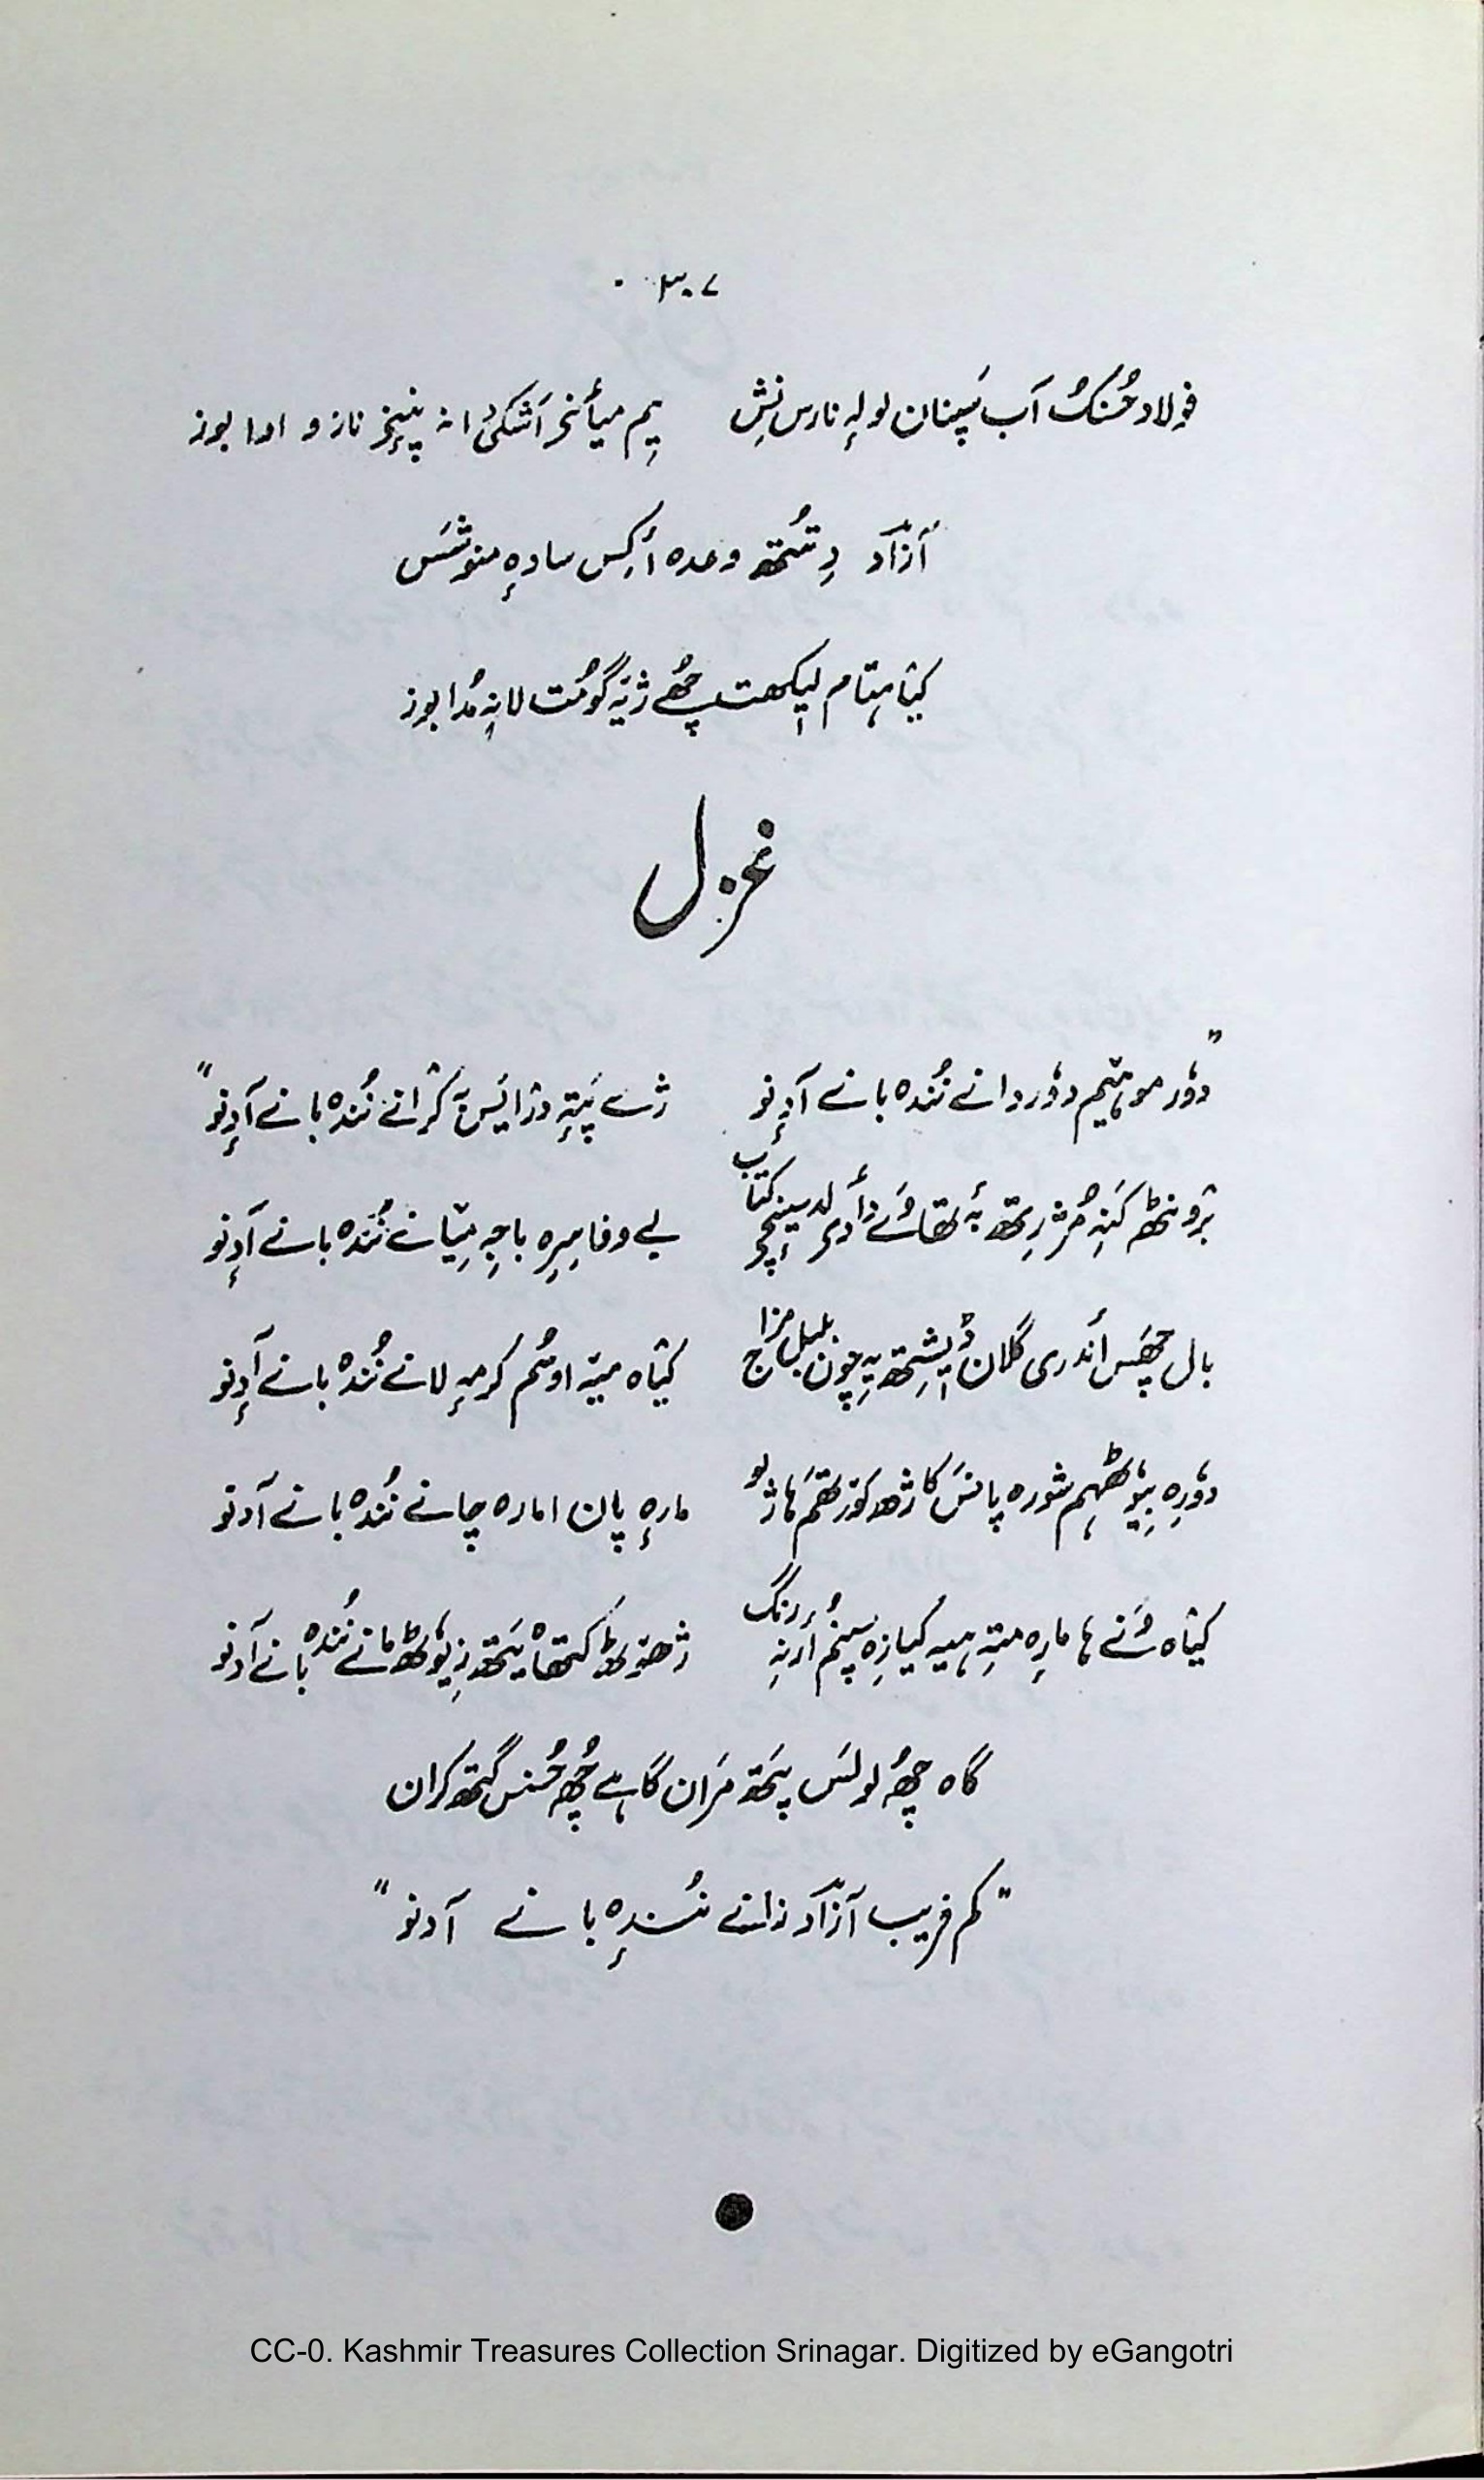 ۳۰۷
فولاد حُسنُک آب سَپنان لولہٕ نارس نِش یِم میأنۍ أشکۍ دانہ پنٕنۍ ناز و ادا بوز
آزاد دِتُتھ وعدہ أکِس سادہٕ منوشَس
کیٛاہتام لیٖکھتھ چھُے ژیٚہ گومُت لانہِ مُدا بوز
غزل
"دوٗر موہیٚم دوٗر دانے نُندہ بانے آدٕنو ژے پَتہٕ درٛایَس بہٕ کرٛانے نُندہ بانے آدٕنو"
برٛونٹھ کَنہِ مُژرِتھ بہٕ تھاوَے دأدۍ لد سینٕچ کتاب بے وفا مِہرہ باجہِ میٛانے نُندہ بانے آدٕنو
بال چھَس أندری گلان ڈیٖشِتھ یہِ چون بلبل مزاج کیٛاہ میٚہ اوسُم کرمہٕ لانے نُندہ بانے آدٕنو
دوٗرِہ بیوٗٹھہم شورہ پانَس کا ژھہ کوٚرتھَم ہا ژلو مارہٕ پان امارہ چانے نُندہ بانے آدنو
کیٛاہ وَنے ہا مارِہ متہِ ہیہ کیازِہ سپنُم أرنہِ رنگ ژھوٚٹ کتھاہ یَتھ زیوٗٹھ مانے نُندہ بانے آدنو
گاہ چھُ لولَس پَتھ مَران گاہے چھُ حُسنس گتھ کران
"کم فریب آزاد زانے نُندہٕ بانے آدنو"
CC-0. Kashmir Treasures Collection Srinagar. Digitized by eGangotri